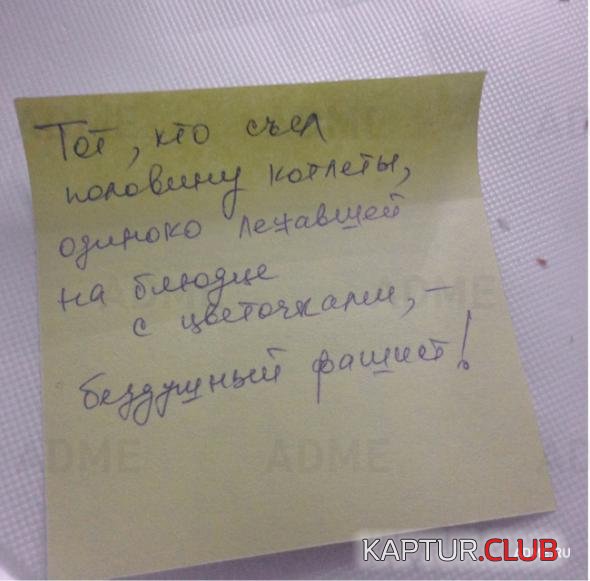 Тот, кто съел
половину котлеты,
одиноко лежавшей
на блюдце
с цветочками, –
бездушный фашист!
ADME
ADME
ADME
ADME
ADME
ADME
KAPTUR.CLUB